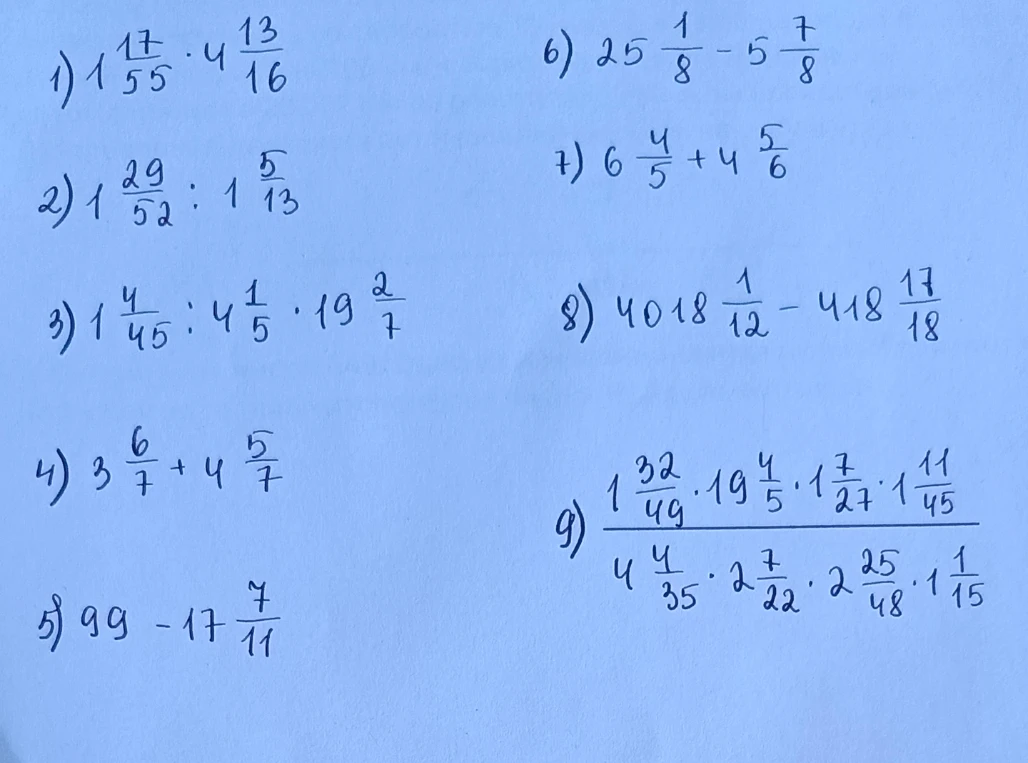 1) 1 17/55 · 4 13/16
2) 1 29/52 : 1 5/13
3) 1 4/45 : 4 1/5 · 19 2/7
4) 3 6/7 + 4 5/7
5) 99 - 17 7/11
6) 25 1/8 - 5 7/8
7) 6 4/5 + 4 5/6
8) 4018 1/12 - 418 17/18
9) 1 32/49 · 19 4/5 · 1 7/27 · 1 11/45
4 4/35 · 2 7/22 · 2 25/48 · 1 1/15